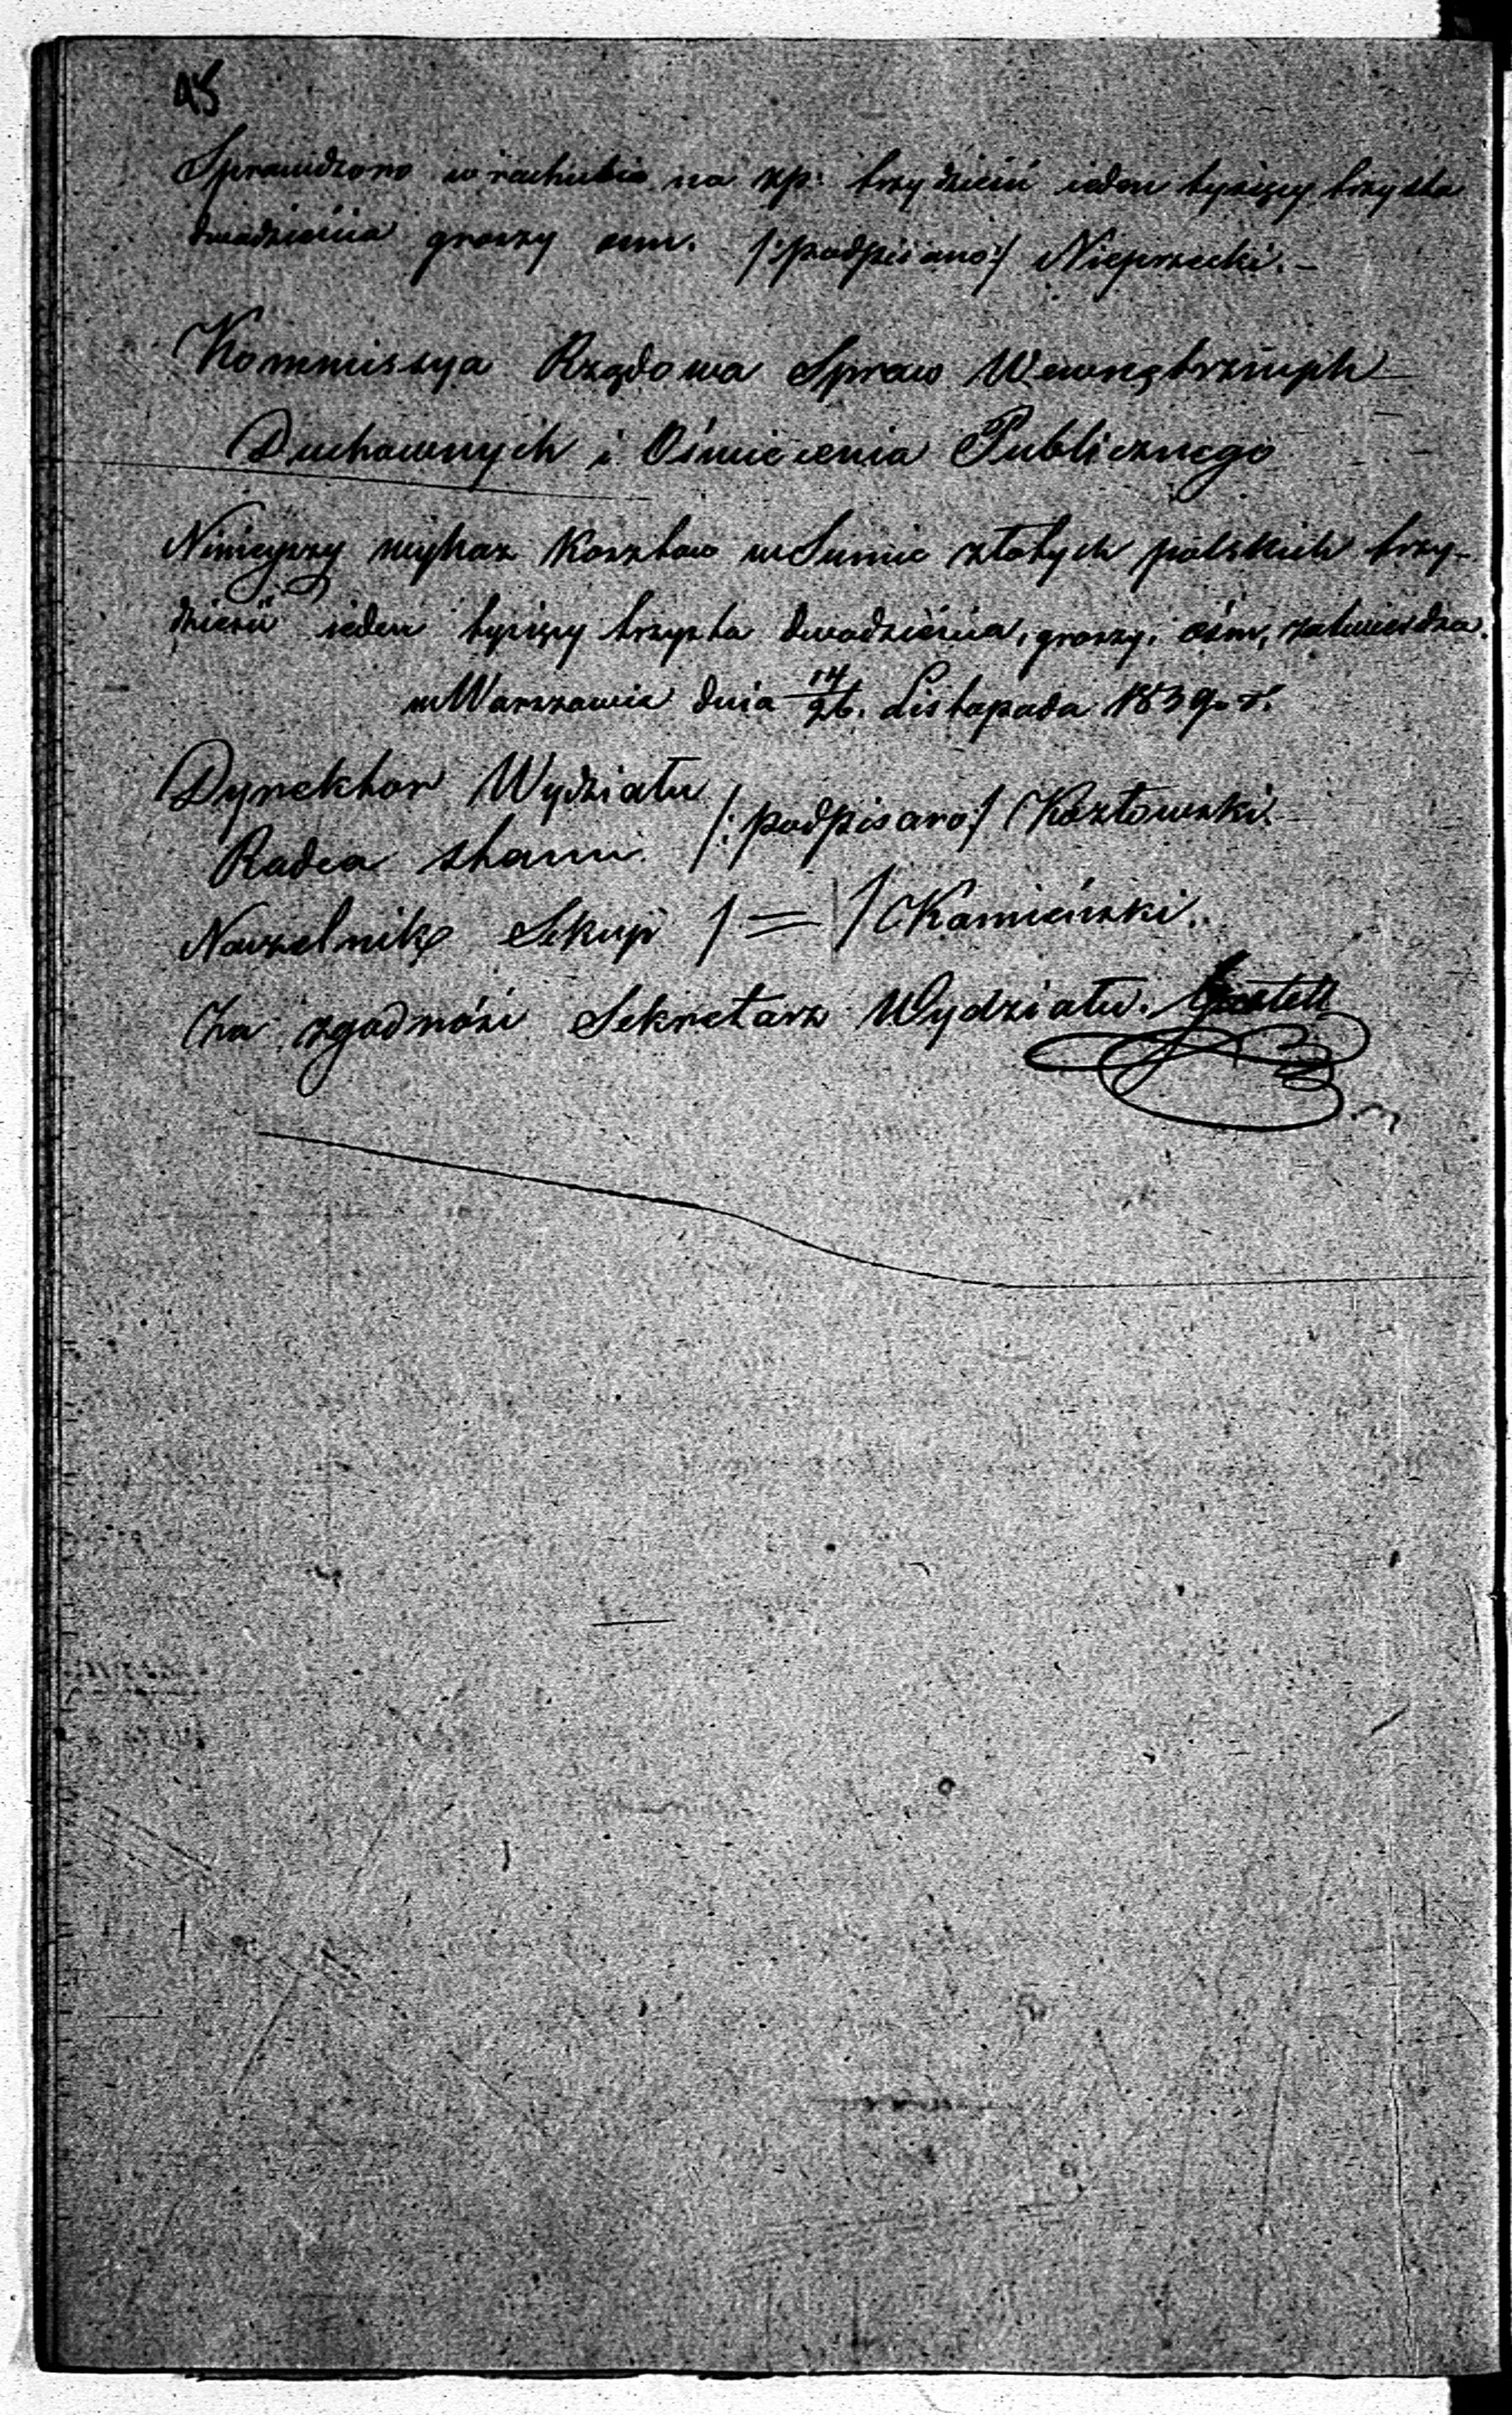 45
Sprawdzono w rachubie na zp: trzydzieści ieden tysięcy trzysta
dwadzieścia groszy osm. /:podpisano:/ Nieprzecki. –
Kommissya Rządowa Spraw Wewnętrznych
Duchownych i Oświecenia Publicznego
Ninieyszy wykaz Kosztow w Sumie złotych polskich trzy-
dzieści ieden tysięcy trzysta dwadzieścia, groszy, ośm, zatwierdza.
w Warszawie dnia 14/26. Listopada 1839 r.
Dyrektor Wydziału
Radca Stanu /:podpisano:/ Kozłowski. –
Naczelnik Sekcyi /=/ Kamieński.
Za zgodność Sekretarz Wydziału.